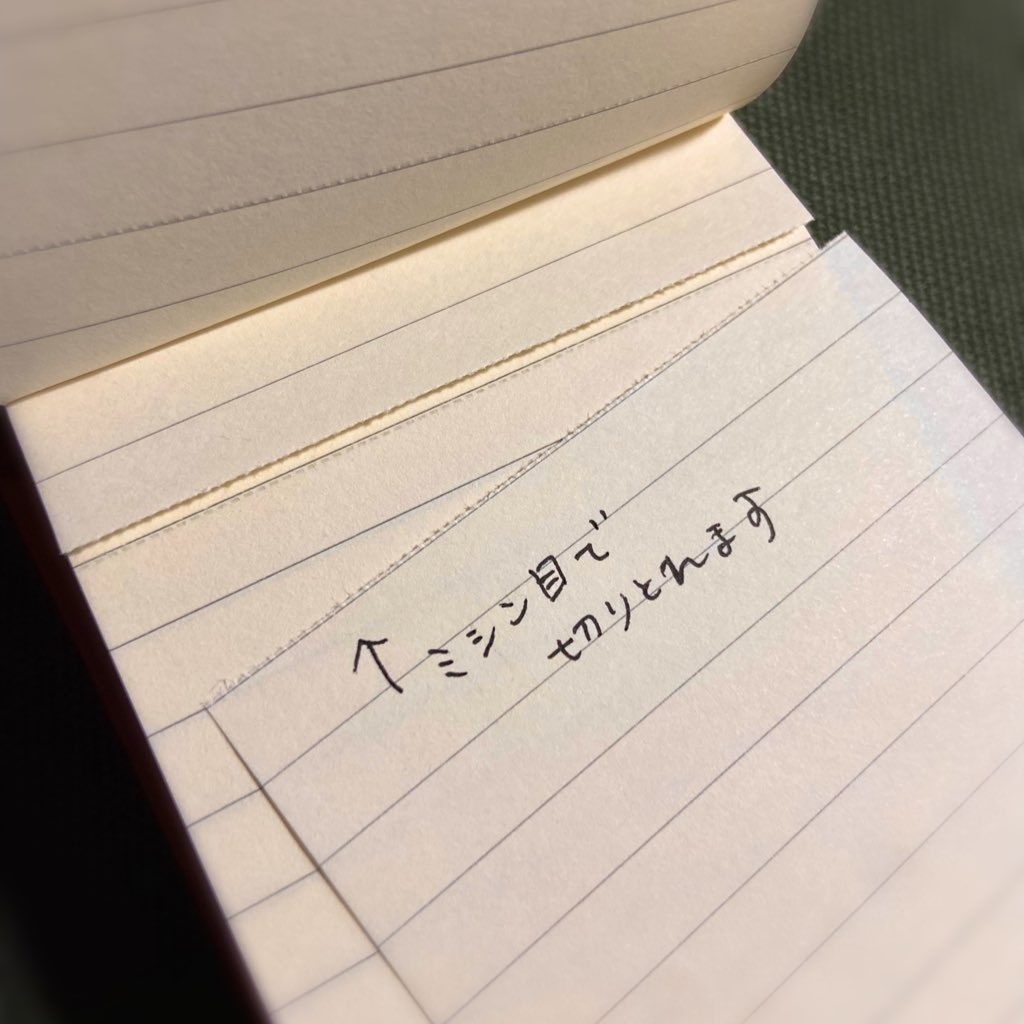 ↑ミシン目で
切りとれます